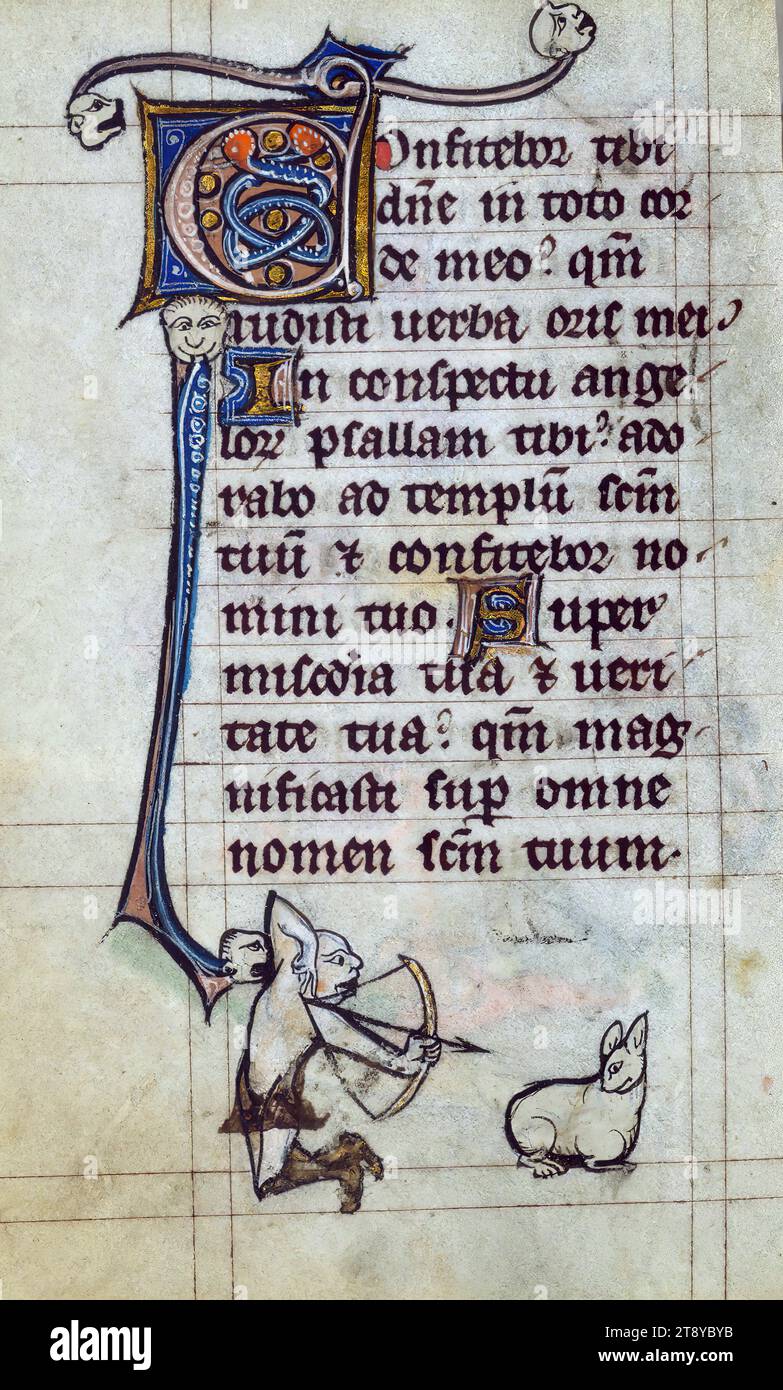 Confitebor tibi
dn̄e in toto cor
de meo? qm̄
audisti uerba oris mei
In conspectu ange
lorꝝ psallam tibi? ado
rabo ad templū scm̄
tuū ⁊ confitebor no
mini tuo. Super
mis̄cdia tua ⁊ ueri
tate tua? qm̄ mag
nificasti sup̄ omne
nomen scm̄ tuum.
alamy
alamy
Image ID: 2T8YBYB
www.alamy.com